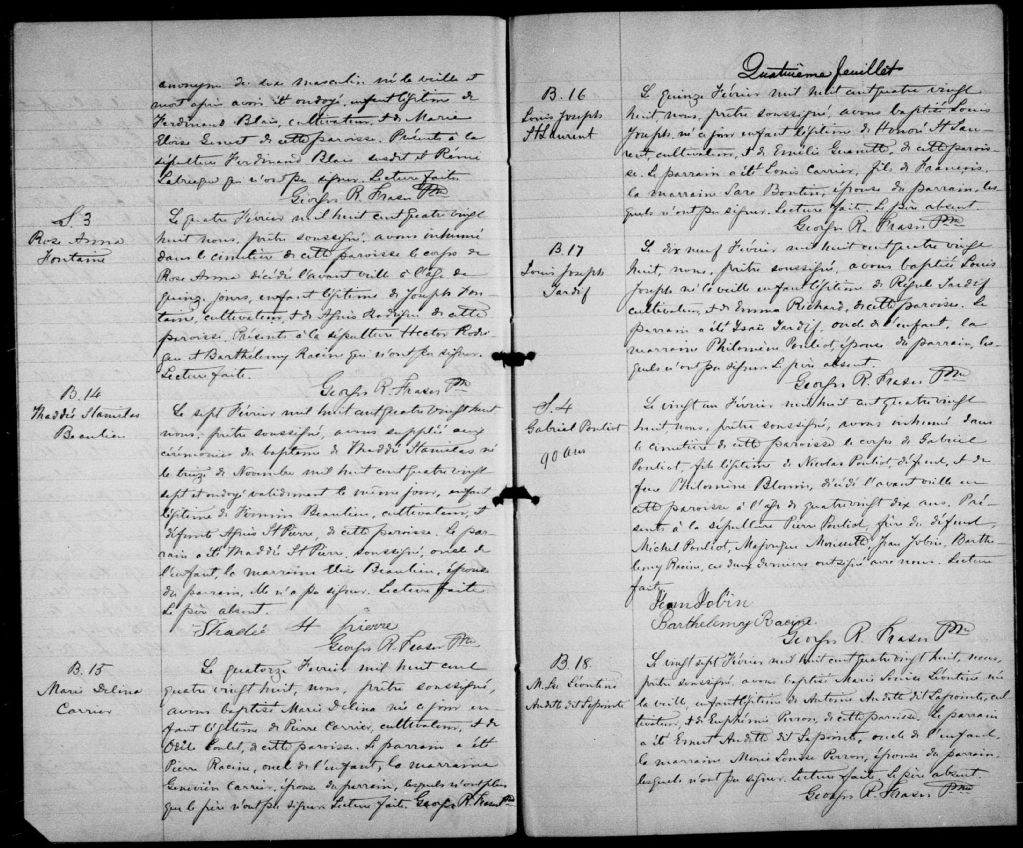 anonyme de sexe masculin né la veille et
mort après avoir été ondoyé, enfant légitime de
Ferdinand Blais, cultivateur, & de Marie
Eloise Genest de cette paroisse. Présents à la
sépulture Ferdinand Blais susdit et Rémi
Labrecque qui n'ont pu signer. Lecture faite
Georges R. Fraser Ptre
S. 3
Rose Anna
Fontaine
Le quatre Février mil huit cent quatre vingt
huit nous, prêtre soussigné, avons inhumé
dans le cimetière de cette paroisse le corps de
Rose Anna décédée l'avant veille à l'âge de
quinze jours, enfant légitime de Joseph Fon-
taine, cultivateur, & de Agnès Rodrigue de cette
paroisse. Présents à la sépulture Hector Rodri
gue & Barthélemy Racine qui n'ont pu signer.
Lecture faite.
Georges R. Fraser Ptre
B. 14
Thaddée Stanislas
Beaulieu
Le sept Février mil huit cent quatre vingt huit
nous, prêtre soussigné, avons suppléé aux
cérémonies du baptême de Thaddée Stanislas né
le treize de Novembre mil huit cent quatre vingt
sept et ondoyé validement le même jour, enfant
légitime de Firmin Beaulieu, cultivateur, &
défunte Agnès St Pierre, de cette paroisse. Le par-
rain a été Thaddée St Pierre, soussigné, oncle de
l'enfant, la marraine Elise Beaulieu, épouse
du parrain, elle n'a pu signer. Lecture faite
Le père absent.
Thadée St pierre
Georges R. Fraser Ptre
B. 15
Marie Delina
Carrier
Le quatorze Février mil huit cent
quatre vingt huit, nous, prêtre soussigné,
avons baptisé Marie Delina née ce jour en-
fant légitime de Pierre Carrier, cultivateur, & de
Odile Goulet, de cette paroisse. Le parrain a été
Pierre Racine, oncle de l'enfant, la marraine
Geneviève Carrier, épouse du parrain, lesquels n'ont plus
que le père n'ont pu signer. Lecture faite. Georges R. Fraser Ptre
Quatrième feuillet
B. 16
Louis Joseph
St Laurent
Le quinze Février mil huit cent quatre vingt
huit, nous, prêtre soussigné, avons baptisé Louis
Joseph, né ce jour enfant légitime de Honoré St Lau-
rent, cultivateur, & de Emélie de cette parois-
se. Le parrain a été Louis Carrier, fils de François,
la marraine Sara Boutin, épouse du parrain, les-
quels n'ont pu signer. Lecture faite. Le père absent.
Georges R. Fraser Ptre
B. 17
Louis Joseph
Tardif
Le dix neuf Février mil huit cent quatre vingt
huit, nous, prêtre soussigné, avons baptisé Louis
Joseph né la veille enfant légitime de Régul Tardif
cultivateur, & de Emma Richard, de cette paroisse. Le
parrain a été Isaïe Tardif, oncle de l'enfant, la
marraine Philomène Pouliot, épouse du parrain, les-
quels n'ont pu signer. Le père absent.
Georges R. Fraser Ptre
S. 4
Gabriel Pouliot
90 ans
Le vingt un Février mil huit cent quatre vingt
huit nous, prêtre soussigné, avons inhumé dans
le cimetière de cette paroisse le corps de Gabriel
Pouliot, fils légitime de Nicolas Pouliot, défunt, & de
feue Philomène Blouin, décédé l'avant veille en
cette paroisse à l'âge de quatre vingt dix ans. Pré-
sents à la sépulture Pierre Pouliot, frère du défunt,
Michel Pouliot, Majorique Jean Jobin, Barthe
lemy Racine, ces deux derniers ont signé avec nous. Lecture
faite.
Jean Jobin
Barthelemy Racine
Georges R. Fraser Ptre
B. 18
M. Lse Léontine
Audette dit Lapointe
Le vingt sept Février mil huit cent quatre vingt huit, nous,
prêtre soussigné, avons baptisé Marie Louise Léontine née
la veille, enfant légitime de Antoine Audette dit Lapointe, cul
tivateur, & de Euphémie Pirron, de cette paroisse. Le parrain
a été Ernest Audette dit Lapointe, oncle de l'enfant,
la marraine Marie Louise Perron, épouse du parrain,
lesquels n'ont pu signer. Lecture faite. Le père absent.
Georges R. Fraser Ptre